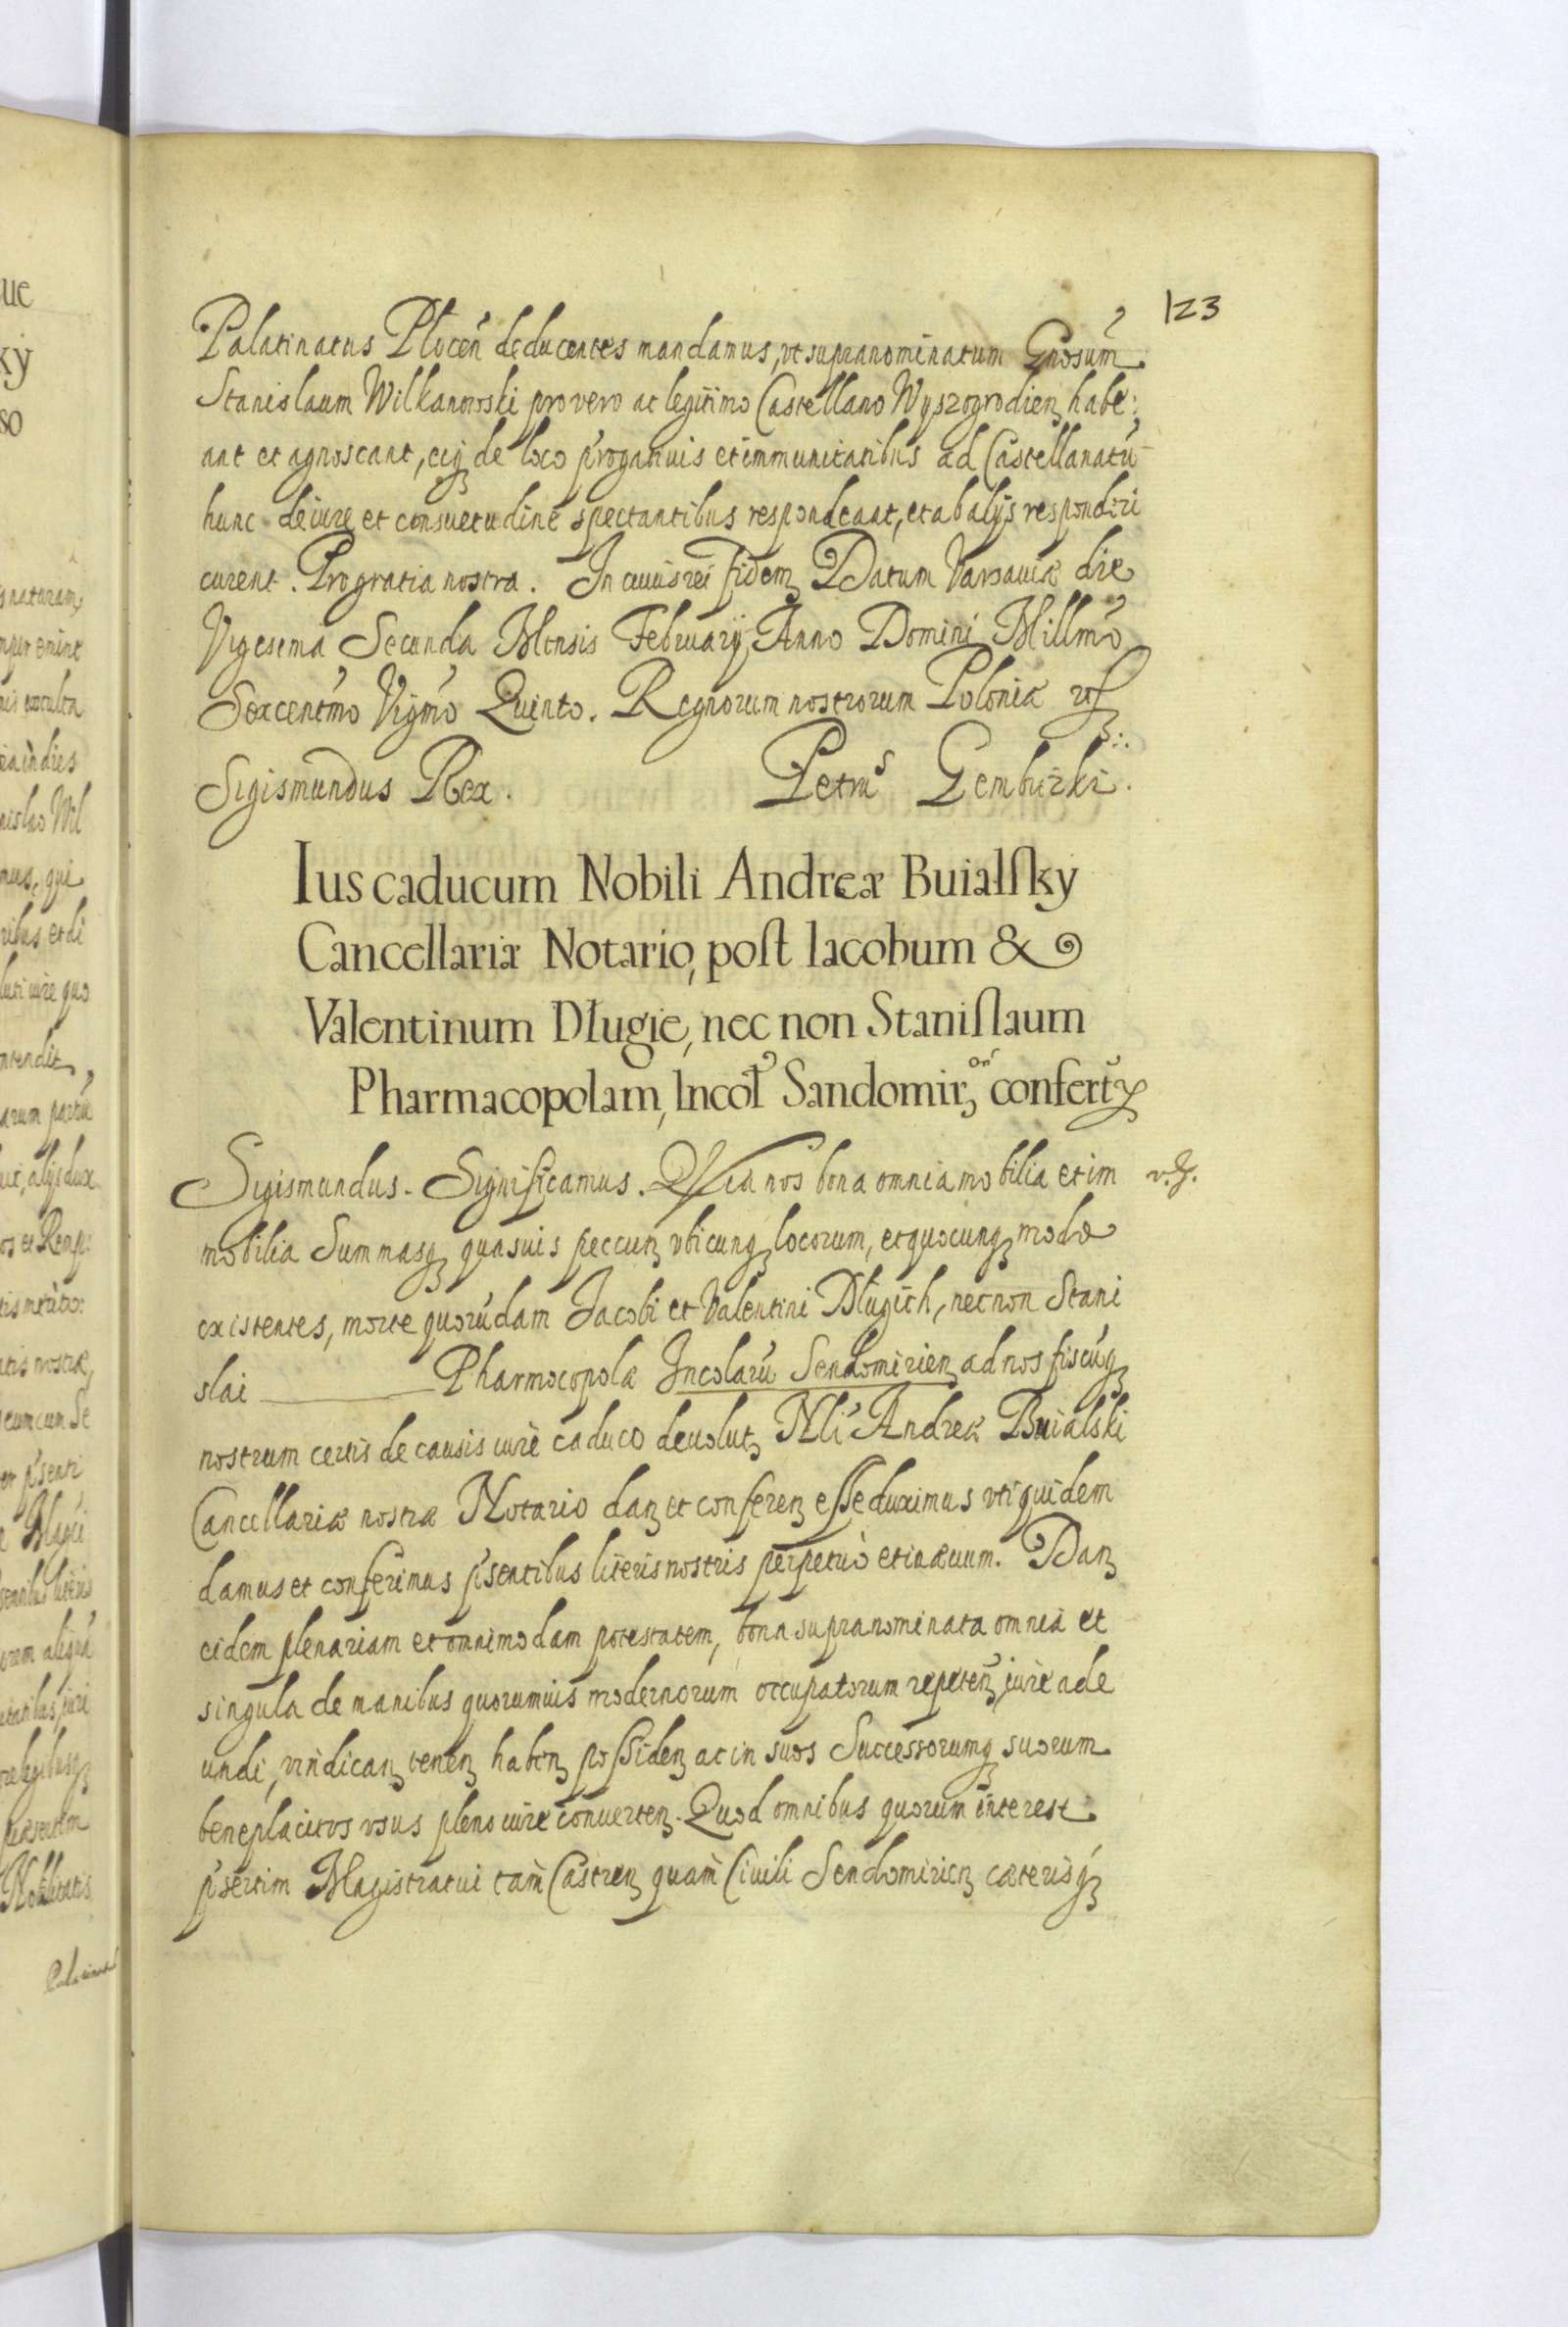 123
Palatinatus Plocen̄ deducentes mandamus, vt supranominatum Gnosum̄
Stanislaum Wilkanowski pro vero ac legitimo Castellano Wyszogrodienȝ habe:
ant et agnoscant, eiqȝ de loco p̄rogatiuis et immunitatibus ad Castellanatū
hunc de iure et consuetudine spectantibus respondeant, et ab alijs responderi
curent. Pro gratia nostra. In cuius rei fidem Datum Varsauiæ die
Vigesima Secunda Mensis February Anno Domini Millm̄o
Sexcentm̄o Vigm̄o Quinto. Regnorum nostrorum Poloniæ
Sigismundus Rex. Petrus Gembicki.
Ius caducum Nobili Andreæ Buialſky
Cancellariæ Notario, poſt Iacobum &
Valentinum Długie, nec non Staniſlaum
Pharmacopolam, Incol̄ Sandomirȝ confertr
Sigismundus. Significamus. Quia nos bona omnia mobilia et im
v. g.
mobilia Summasqȝ quasuis peccunȝ vbicunqȝ locorum, et quocunqȝ modo
existentes, morte quorūdam Jacobi et Valentini Długich, nec non Stani
slai ——— Pharmocopolæ Incolarū Sendomirienȝ ad nos fiscūqȝ
nostrum certis de causis iure caduco deuolutȝ Nli Andreæ Buialski
Cancellariæ nostræ Notario danȝ et conferenȝ eſſe duximus vti quidem
damus et conferimus p̄sentibus literis nostris perpetuo et in æuum. Danȝ
eidem plenariam et omnimodam potestatem, bona supranominata omnia et
singula de manibus quorumuis modernorum occupatorum repetenȝ, iure ade
undi, vindicanȝ tenenȝ habenȝ poſſidenȝ ac in suos Successorumqȝ suorum
beneplacitos vsus pleno iure conuertenȝ. Quod omnibus quorum interest
p̄sertim Magistratui tam Castrenȝ quam Ciuili Sendomirienȝ cæterisqȝ